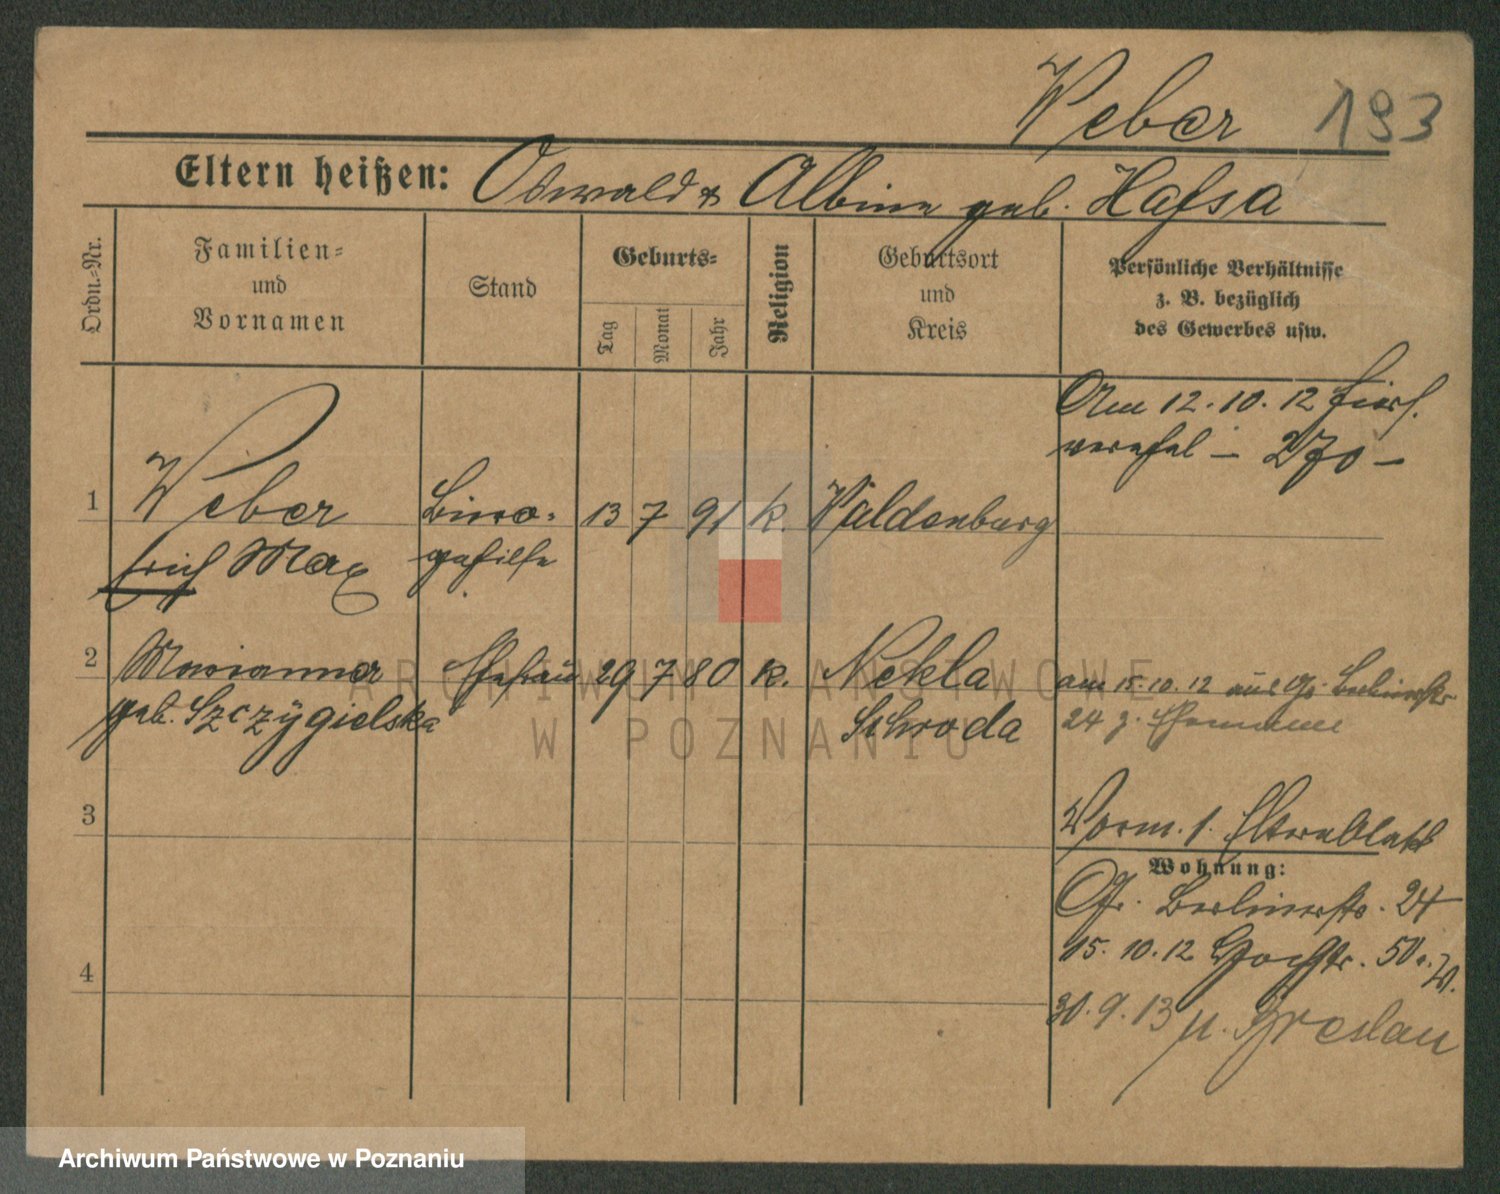 Weber 193
Eltern heißen: Oswald & Albine geb. Hassa
Ordn.-Nr.
Familien-
und
Vornamen
Stand
Geburts-
Tag
Monat
Jahr
Religion
Geburtsort
und
Kreis
Persönliche Verhältnisse
z. B. bezüglich
des Gewerbes usw.
Am 12.10.12 hier
verehel – 270 –
1 Weber Büro- 13 7 91 k. Waldenburg
Erich Max gehilfe
2 Marianna Ehefrau 29 7 80 k. Nekla
geb. Szczÿgielska Schroda
am 15.10.12 aus Gr. Berlinerstr
24 z. Ehemann
3
Vorm. s. Elternblatt
Wohnung:
Gr. Berlinerstr. 24
15.10.12 Hochstr. 50
4
30.9.13 n. Breslau
ARCHIWUM PAŃSTWOWE
W POZNANIU
Archiwum Państwowe w Poznaniu